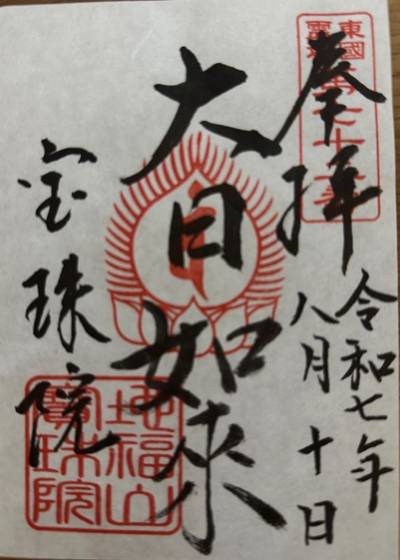 奉拝
令和七年
八月十日
大日如来
宝珠院
東國
霊場
地福山
寶珠院